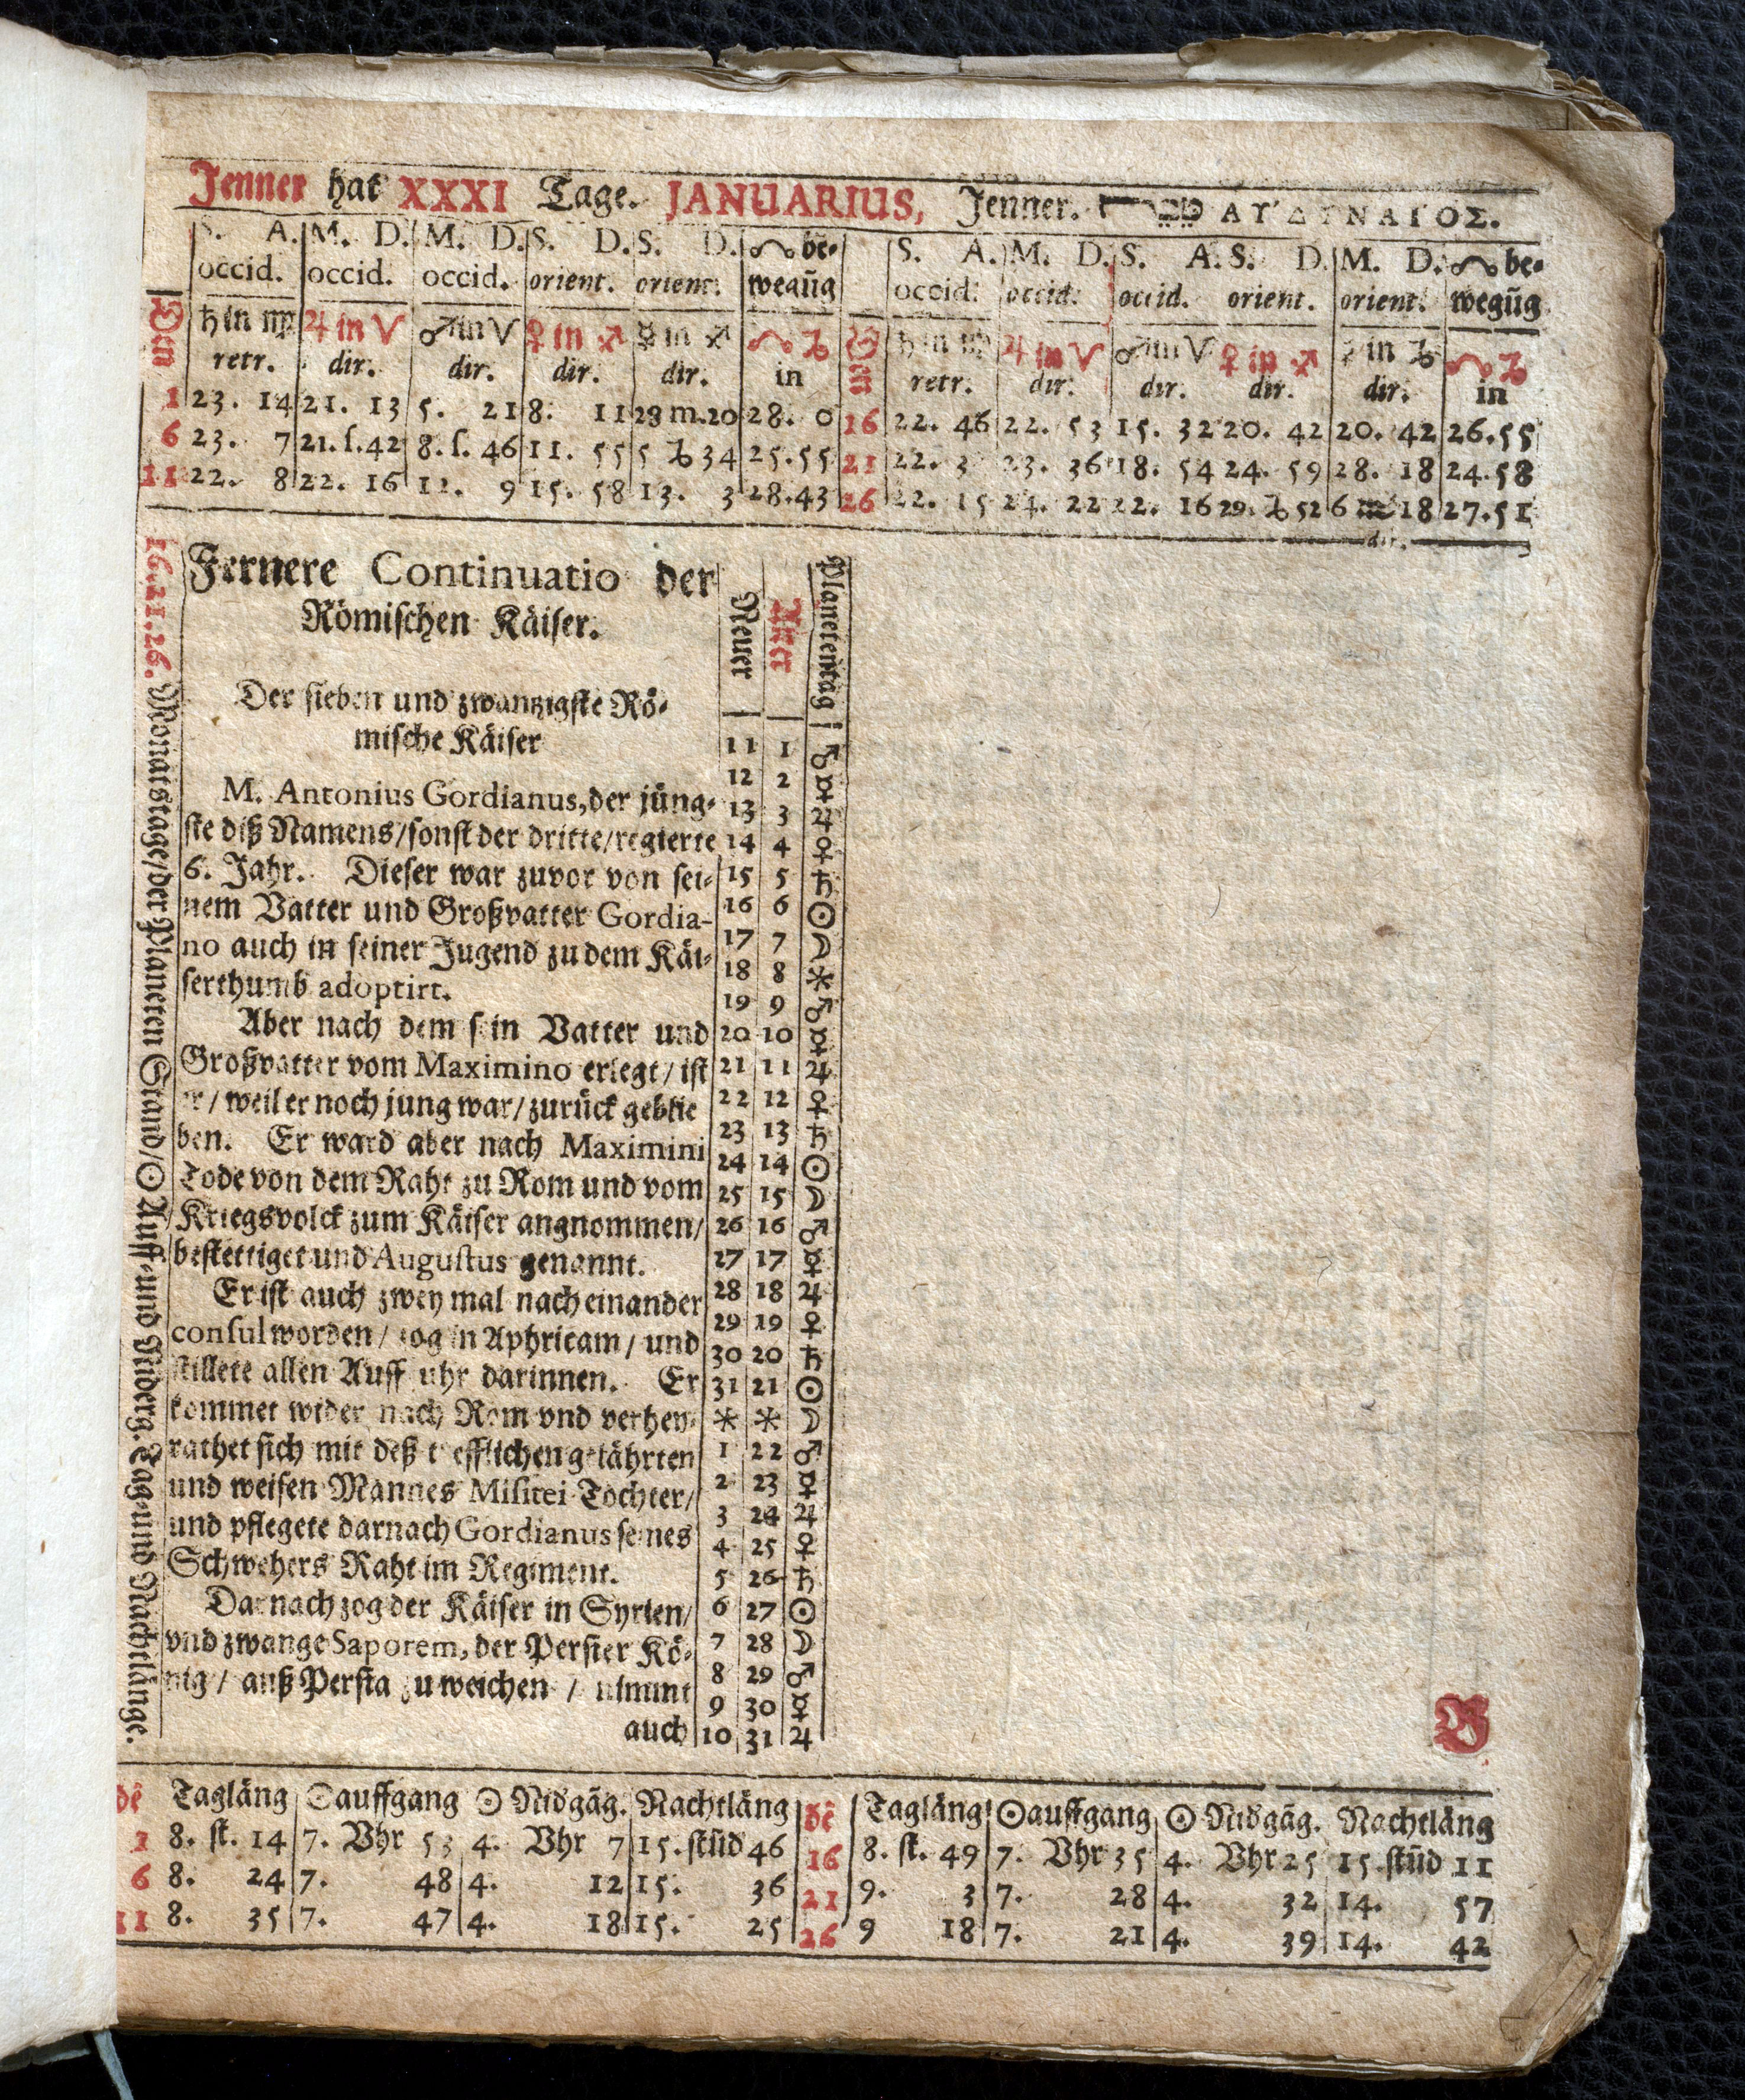 Jenner hat XXXI Tage. JANUARIUS, Jenner. ΑΥ'ΔΥΝΑΙΟΣ.
S. A. M. D. M. D. S. D. S. D. ☊ be- S. A. M. D. S. A. S. D. M. D. ☊ be-
occid. occid. occid. orient. orient. wegūg occid. occid. occid. orient. orient. wegūg
Den ♄ in ♍ ♃ in ♈ ♂ in ♈ ♀ in ♐ ☿ in ♐ ☊ ♑ Den ♄ in ♍ ♃ in ♈ ♂ in ♈ ♀ in ♐ ☿ in ♑ ☊ ♑
retr. dir. dir. dir. dir. in retr. dir. dir. dir. dir. in
1 23. 14 21. 13 5. 21 8. 11 28 m. 20 28. 0 16 22. 46 22. 53 15. 32 20. 42 20. 42 26. 55
6 23. 7 21. ſ. 42 8. ſ. 46 11. 55 5 ♑ 34 25. 55 21 22. 3 23. 36 18. 54 24. 59 28. 18 24. 58
11 22. 8 22. 16 12. 9 15. 58 13. 3 28. 43 26 22. 15 24. 22 22. 16 29. ♑ 52 6 ♒ 18 27. 51
dir.
16. 21. 26. Monatstage/der Planeten Stand/☉ Auff-und Niderg. Tag-und Nachtlänge.
Fernere Continuatio der
Römiſchen Käiſer.
Der ſieben und zwantzigſte Rö-
miſche Käiſer
M. Antonius Gordianus, der jüng-
ſte diß Namens/ſonſt der dritte/regierte
6. Jahr. Dieſer war zuvor von ſei-
nem Vatter und Großvatter Gordia-
no auch in ſeiner Jugend zu dem Käi-
ſerthumb adoptirt.
Aber nach dem ſein Vatter und
Großvatter vom Maximino erlegt / iſt
er / weil er noch jung war / zurück geblie
ben. Er ward aber nach Maximini
Tode von dem Raht zu Rom und vom
Kriegsvolck zum Käiſer angnommen/
beſtettiget und Auguſtus genannt.
Er iſt auch zwey mal nach einander
conſul worden / zog in Aphricam / und
ſtillete allen Auffruhr darinnen. Er
kommet wider nach Rom vnd verhey-
rathet ſich mit deß trefflichen gelährten
und weiſen Mannes Miſitei Tochter/
und pflegete darnach Gordianus ſeines
Schwehers Raht im Regiment.
Darnach zog der Käiſer in Syrien/
vnd zwange Saporem, der Perſier Kö-
nig / auß Perſia zu weichen / nimmt
auch
Neuer Alter Planetentäg
11 1 ♂
12 2 ☿
13 3 ♃
14 4 ♀
15 5 ♄
16 6 ☉
17 7 ☽
18 8 *
19 9 ♂
20 10 ☿
21 11 ♃
22 12 ♀
23 13 ♄
24 14 ☉
25 15 ☽
26 16 ♂
27 17 ☿
28 18 ♃
29 19 ♀
30 20 ♄
31 21 ☉
* * ☽
1 22 ♂
2 23 ☿
3 24 ♃
4 25 ♀
5 26 ♄
6 27 ☉
7 28 ☽
8 29 ♂
9 30 ☿
10 31 ♃
B
dē Tagläng ☉auffgang ☉ Nidgāg. Nachtläng dē Tagläng ☉auffgang ☉ Nidgāg. Nachtläng
1 8. ſt. 14 7. Vhr 53 4. Vhr 7 15. ſtūd 46 16 8. ſt. 49 7. Vhr 35 4. Vhr 25 15. ſtūd 11
6 8. 24 7. 48 4. 12 15. 36 21 9. 3 7. 28 4. 32 14. 57
11 8. 35 7. 47 4. 18 15. 25 26 9 18 7. 21 4. 39 14. 42